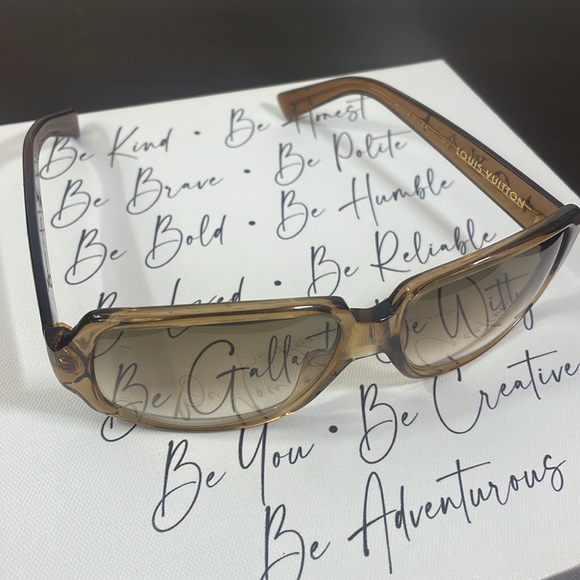 Be Kind • Be Honest
Be Brave • Be Polite
Be Bold • Be Humble
Be Loved • Be Reliable
Be Gallant • Be Witty
Be You • Be Creative
Be Adventurous
LOUIS VUITTON